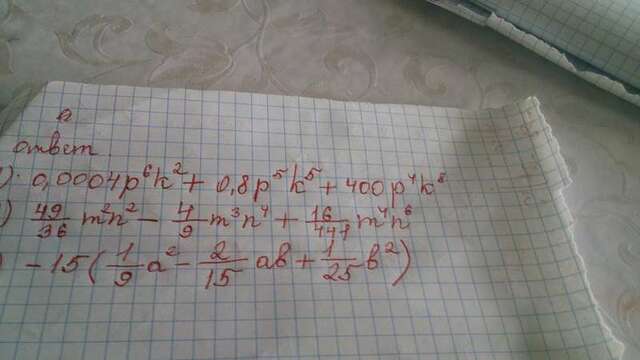 ответ
). 0,0004p⁶k² + 0,8p⁵k⁵ + 400p⁴k⁸
) 49/36 m²n² - 4/9 m³n⁴ + 16/441 m⁴n⁶
) -15(1/9 a² - 2/15 ab + 1/25 b²)